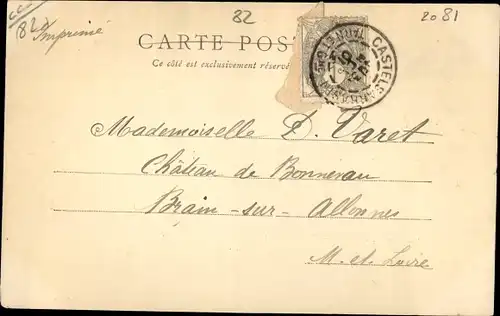 82
2081
(82)
Imprimé
CARTE POS
Ce côté est exclusivement réservé
CASTELS
Mademoiselle D. Varet
Château de Bonneveau
Brain-sur-Allonnes
M. et Loire